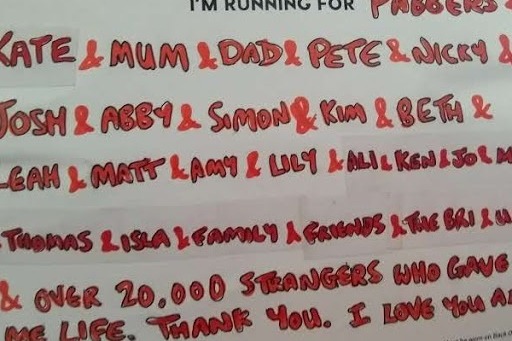 I'M RUNNING FOR PABBERS &
KATE & MUM & DAD & PETE & NICKY &
JOSH & ABBY & SIMON & KIM & BETH &
LEAH & MATT & AMY & LILY & ALI & KEN & JO & M
THOMAS & ISLA & FAMILY & FRIENDS & THE BRI & U
& OVER 20,000 STRANGERS WHO GAVE
ME LIFE. THANK YOU. I LOVE YOU A